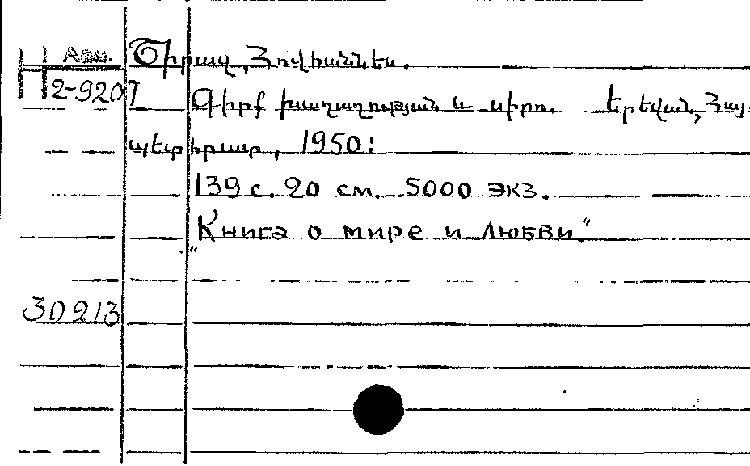 Арм. Շիրազ, Հովհաննես.
H2-9207 Գիրք խաղաղության և սիրո. Երևան, Հայ-
պետհրատ, 1950:
139 с. 20 см. 5000 экз.
"Книга о мире и любви"
30213